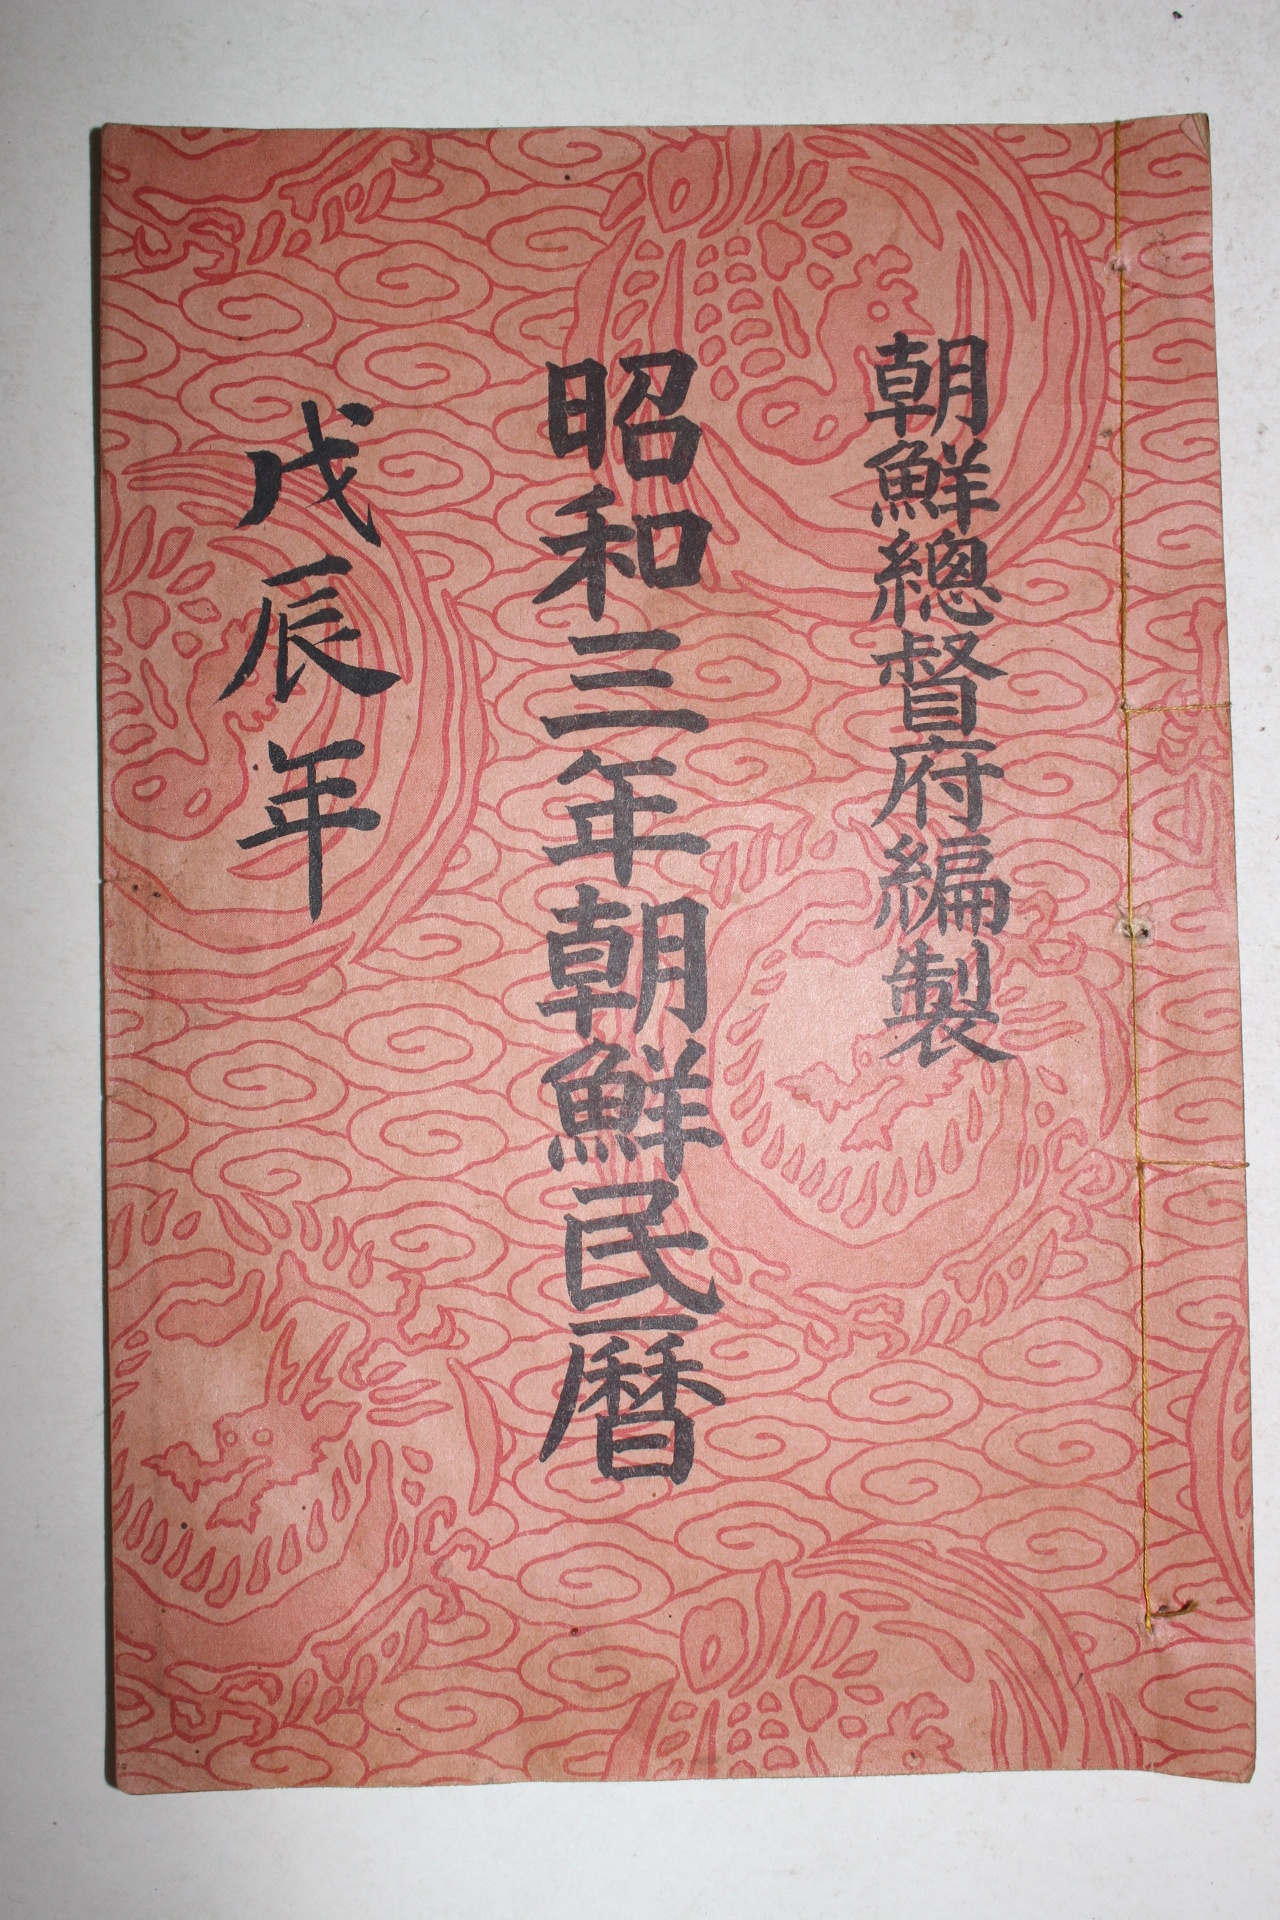 朝鮮總督府編製
昭和三年朝鮮民曆
戊辰年